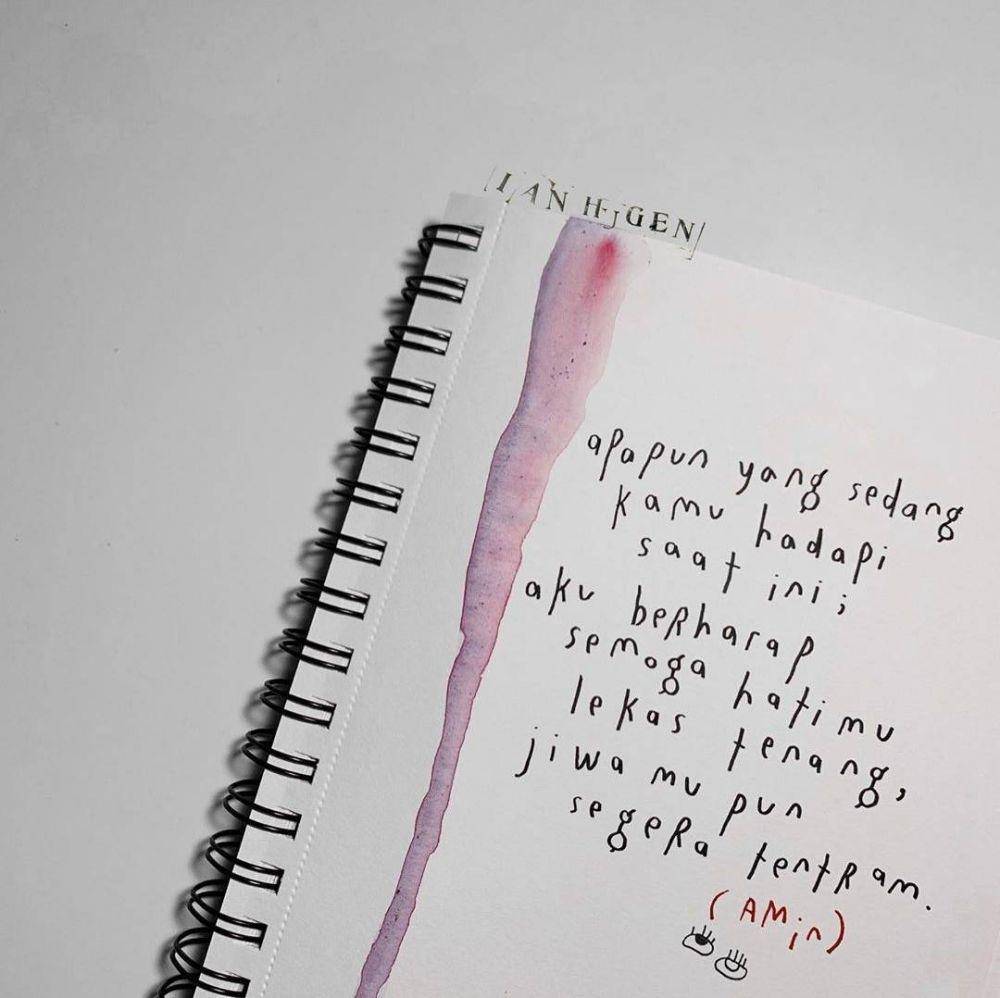 IAN HUGEN
apapun yang sedang
kamu hadapi
saat ini;
aku berharap
semoga hatimu
lekas tenang,
jiwa mu pun
segera tentram.
(AMin)